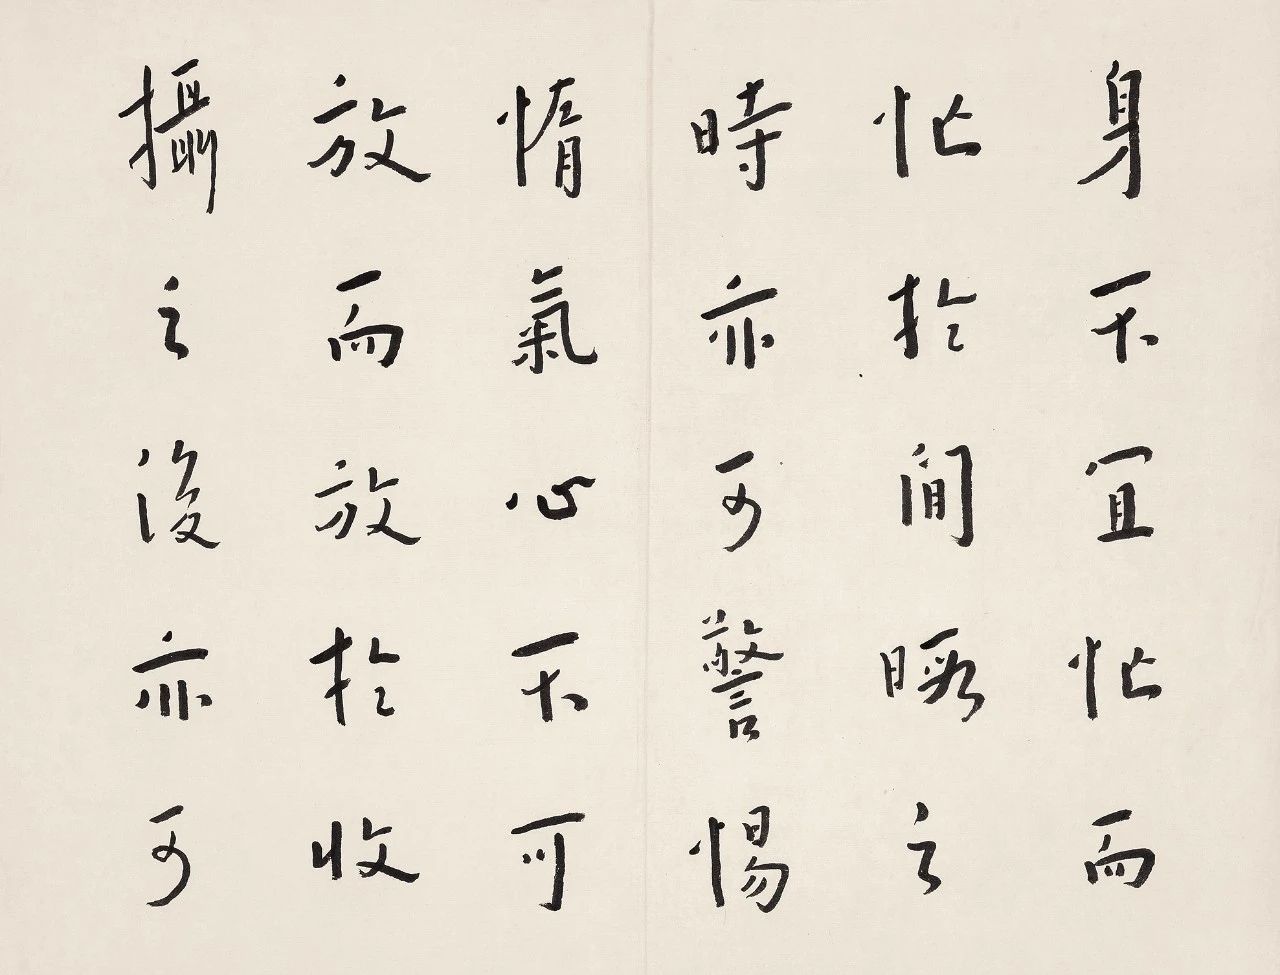 身不宜忙而
忙於閒暇之
時亦可警惕
惰氣心不可
放而放於收
攝之後亦可